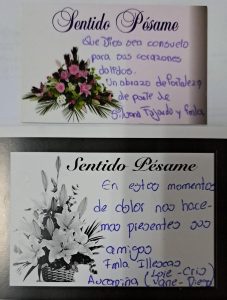 Sentido Pésame
Que Dios sea consuelo
para sus corazones
dolidos.
Un abrazo de fortaleza
de parte de
Silvana Fajardo y Emla
Sentido Pésame
En estos momentos
de dolor nos hace-
mos presentes sus
amigos
Emla Illescas
(Loie - Cris)